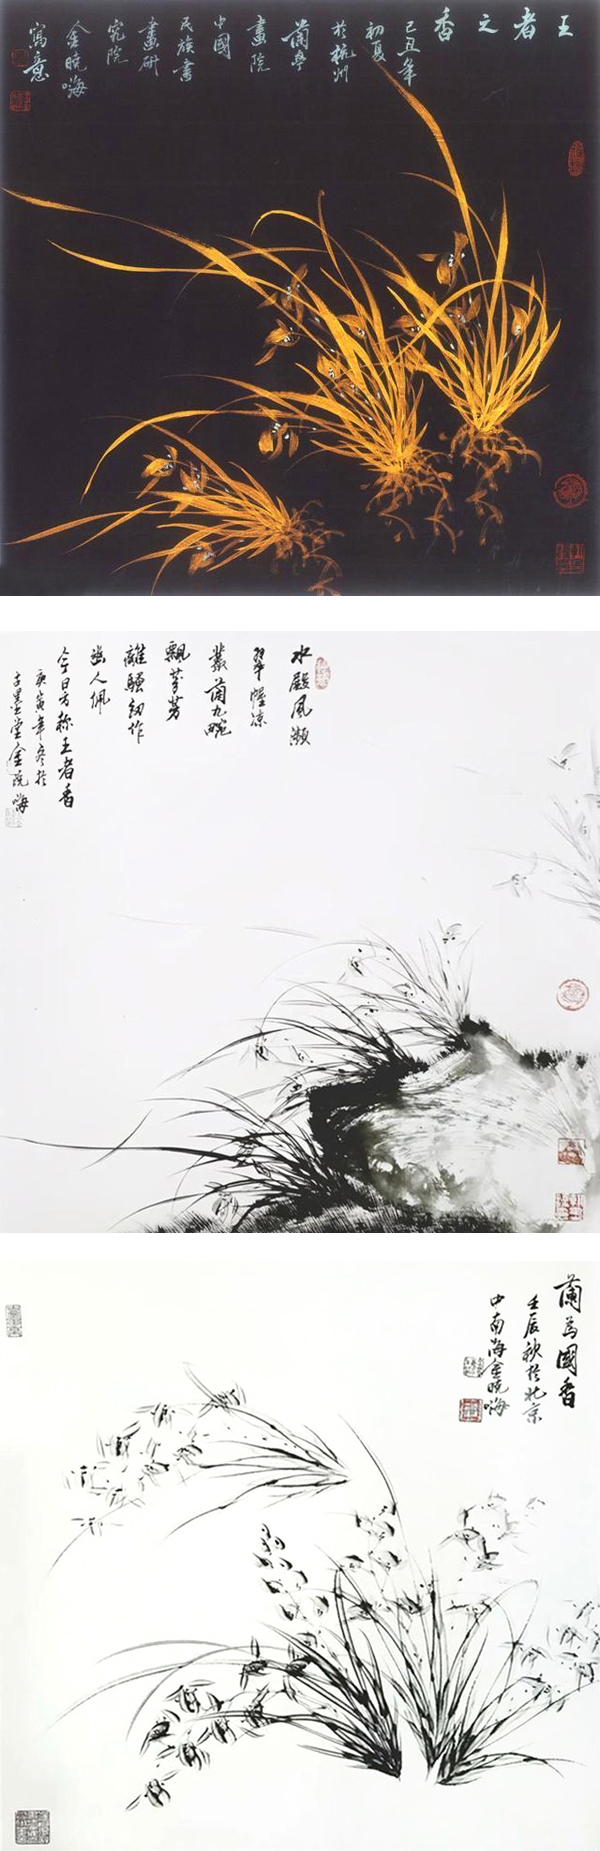 王者之香
己丑年
初夏
於杭州
蘭亭
畫院
中國
民族書
畫研
究院
金晓嗨
寫意
水殿風瀨
翠幄凉
叢蘭九畹
飄芬芳
離騷紉作
幽人佩
今日方称王者香
庚寅年冬於
古墨堂金晓嗨
蘭為國香
壬辰秋於北京
中南海金晓嗨